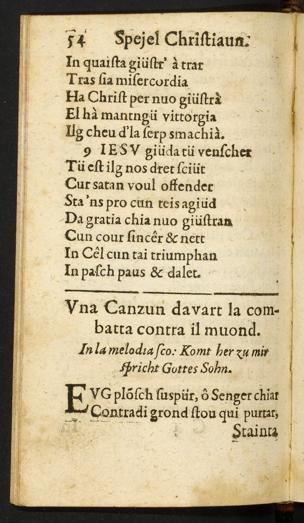 54 Spejel Christiaun.
In quaista giüstr' à trar
Tras sia misercordia
Ha Christ per nuo giüstrà
El hà mantngü vittorgia
Ilg cheu d'la serp smachià.
9 IESV giüda tü venscher
Tü est ilg nos dret sciüt
Cur satan voul offender
Sta 'ns pro cun teis agiüd
Da gratia chia nuo giüstran
Cun cour sincêr & nett
In Cêl cun tai triumphan
In pasch paus & dalet.
Vna Canzun davart la com-
batta contra il muond.
In la melodia sco: Komt her zu mir
spricht Gottes Sohn.
EVG plösch suspür, ô Senger chiar
Contradi grond stou qui purtar,
Stainta